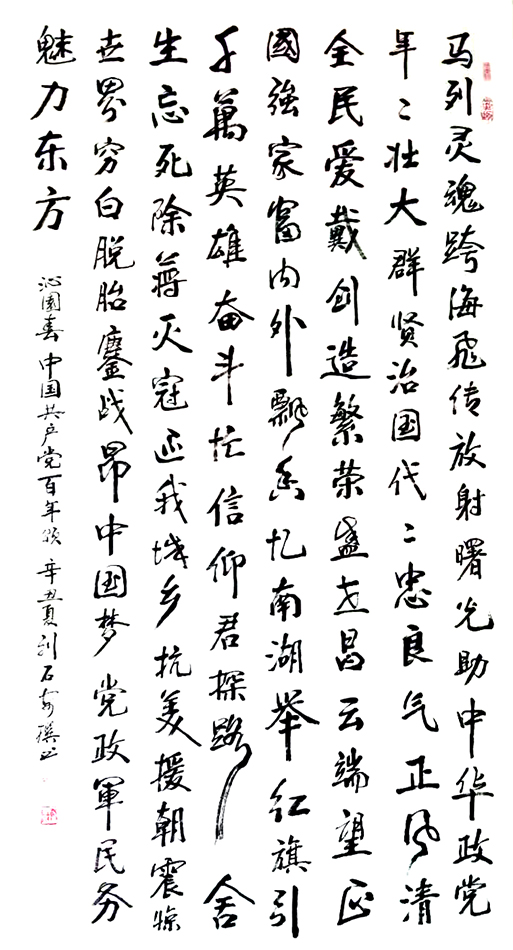 马列灵魂跨海飛传放射曙光助中华政党
年々壮大群贤治国代々忠良气正风清
全民爱戴创造繁荣盛世昌云端望正
國強家富内外飘香忆南湖举红旗引
千萬英雄奋斗忙信仰君探路舍
生忘死除蒋灭寇还我城乡抗美援朝震惊
世界穷白脱胎鏖战昂中国梦党政軍民务
魅力东方
沁園春 中国共产党百年颂 辛丑夏刘石撰书